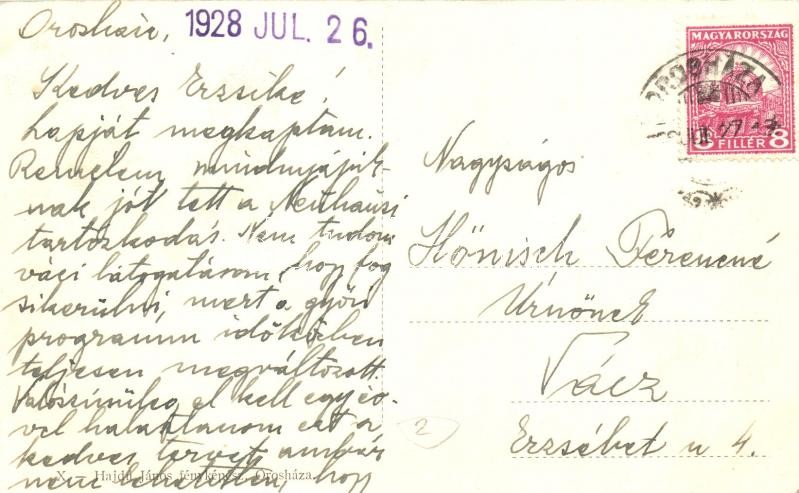 Orosháza, 1928 JUL. 26.
Kedves Erzsike!
Lapját megkaptam.
Remélem mindnyájuk-
nak jót tett a Neuhausi
tartózkodás. Nem tudom
váci látogatásom, hogy fog
sikerülni, mert a győri
programm időközben
teljesen megváltozott.
Valószinüleg el kell egy év-
vel halasztanom ezt a
kedves tervet, ambár
nem szerettem, hogy
X. Hajdu János fényképész, Orosháza.
MAGYARORSZÁG
8 FILLÉR 8
OROSHÁZA
Nagyságos
Hönisch Ferencné
Úrnőnek
Vácz
Erzsébet u 4.
2